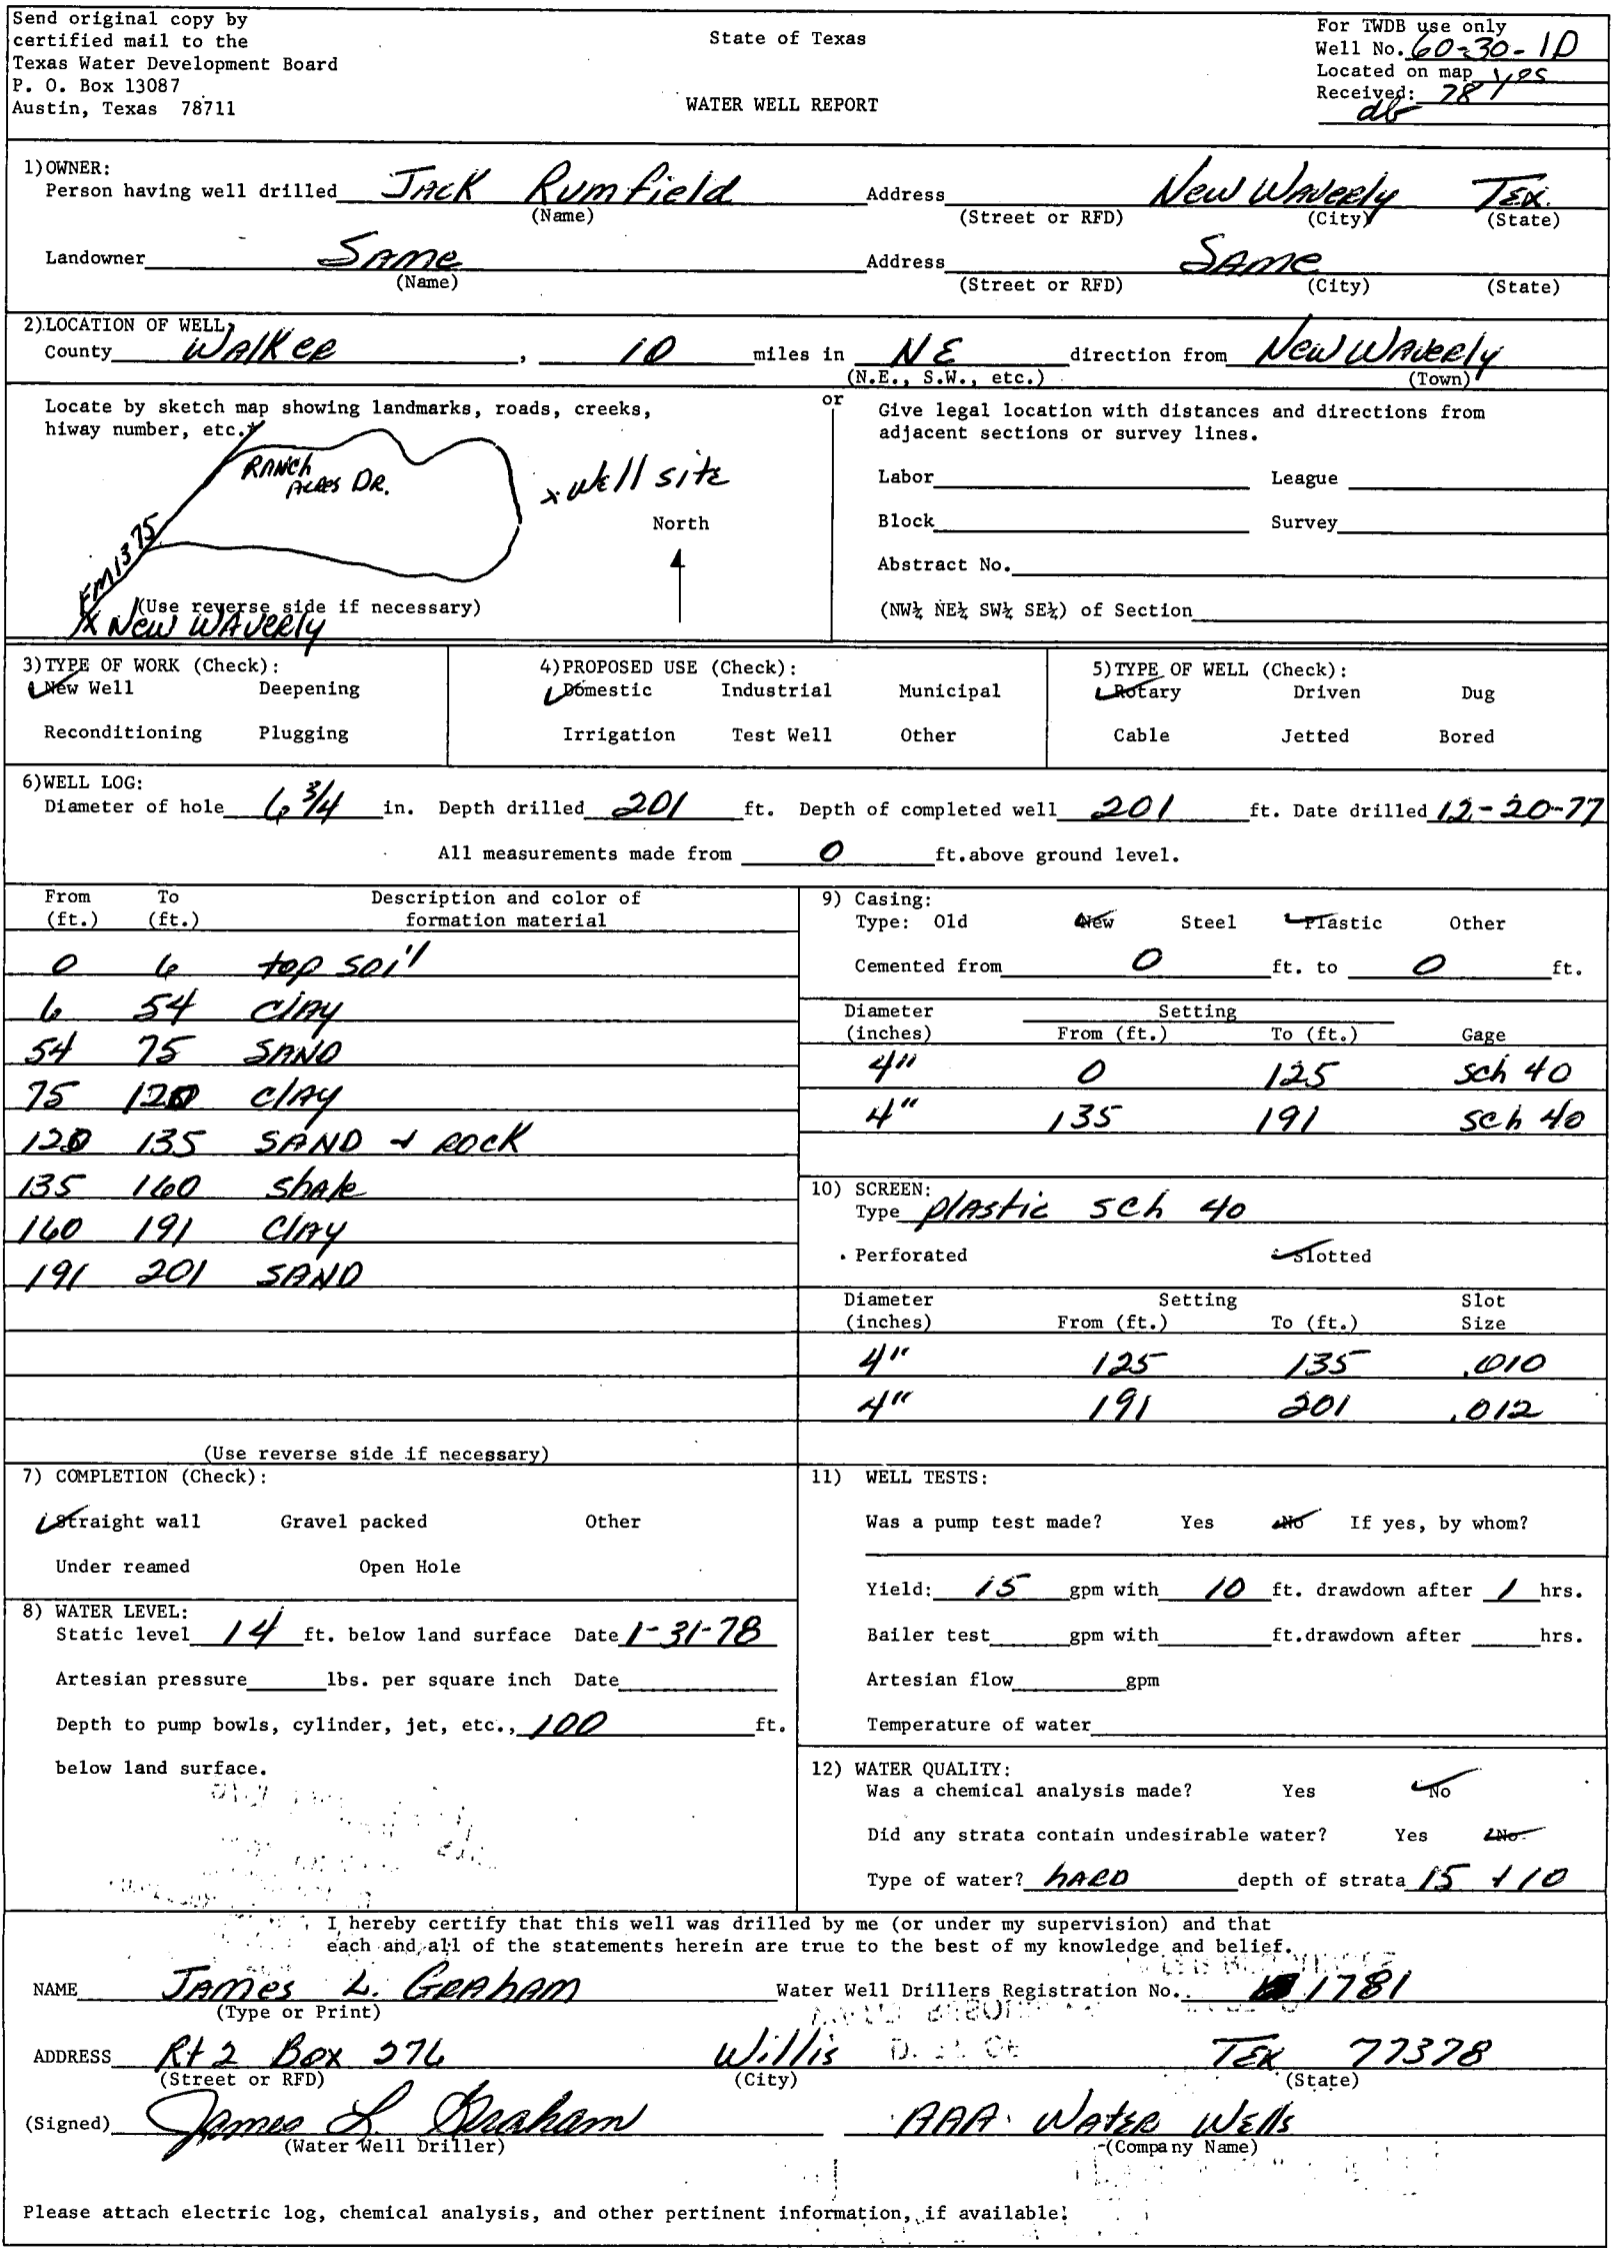 Send original copy by
certified mail to the
Texas Water Development Board
P. O. Box 13087
Austin, Texas 78711
State of Texas
WATER WELL REPORT
For TWDB use only
Well No. 60-30-1D
Located on map yes
Received: 781
db
1) OWNER:
Person having well drilled JACK Rumfield Address New Waverly Tex.
(Name) (Street or RFD) (City) (State)
Landowner SAme Address SAme
(Name) (Street or RFD) (City) (State)
2) LOCATION OF WELL:
County WAlKeR, 10 miles in NE direction from New WAverly
(N.E., S.W., etc.) (Town)
Locate by sketch map showing landmarks, roads, creeks,
hiway number, etc.*
RANCh
ACRes DR.
x well site
FM 1375
North
(Use reverse side if necessary)
X New WAverly
or
Give legal location with distances and directions from
adjacent sections or survey lines.
Labor League
Block Survey
Abstract No.
(NW¼ NE¼ SW¼ SE¼) of Section
3) TYPE OF WORK (Check):
✓New Well Deepening
Reconditioning Plugging
4) PROPOSED USE (Check):
✓Domestic Industrial Municipal
Irrigation Test Well Other
5) TYPE OF WELL (Check):
✓Rotary Driven Dug
Cable Jetted Bored
6) WELL LOG:
Diameter of hole 6 3/4 in. Depth drilled 201 ft. Depth of completed well 201 ft. Date drilled 12-20-77
All measurements made from 0 ft.above ground level.
From To Description and color of
(ft.) (ft.) formation material
0 6 top soil
6 54 clAy
54 75 SAND
75 120 clAy
120 135 SAND + ROCK
135 160 shAle
160 191 ClAy
191 201 SAND
(Use reverse side if necessary)
9) Casing:
Type: Old ✓New Steel ✓Plastic Other
Cemented from 0 ft. to 0 ft.
Diameter Setting
(inches) From (ft.) To (ft.) Gage
4" 0 125 sch 40
4" 135 191 sch 40
10) SCREEN:
Type plAstic sch 40
Perforated ✓Slotted
Diameter Setting Slot
(inches) From (ft.) To (ft.) Size
4" 125 135 .010
4" 191 201 .012
7) COMPLETION (Check):
✓Straight wall Gravel packed Other
Under reamed Open Hole
8) WATER LEVEL:
Static level 14 ft. below land surface Date 1-31-78
Artesian pressure lbs. per square inch Date
Depth to pump bowls, cylinder, jet, etc., 100 ft.
below land surface.
11) WELL TESTS:
Was a pump test made? Yes ✓No If yes, by whom?
Yield: 15 gpm with 10 ft. drawdown after 1 hrs.
Bailer test gpm with ft.drawdown after hrs.
Artesian flow gpm
Temperature of water
12) WATER QUALITY:
Was a chemical analysis made? Yes ✓No
Did any strata contain undesirable water? Yes ✓No
Type of water? hARD depth of strata 15 + 10
I hereby certify that this well was drilled by me (or under my supervision) and that
each and all of the statements herein are true to the best of my knowledge and belief.
NAME JAmes L. GRAhAm Water Well Drillers Registration No. 1781
(Type or Print)
ADDRESS Rt 2 Box 276 Willis Tex 77378
(Street or RFD) (City) (State)
(Signed) James L. Graham AAA WAteR Wells
(Water Well Driller) (Company Name)
Please attach electric log, chemical analysis, and other pertinent information, if available.